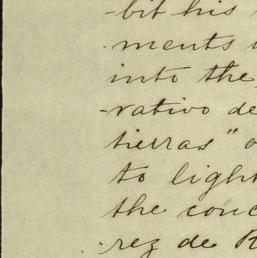 -bit his
ments
into the
-rativo de
tierras"
to light
the conc
-rez de R